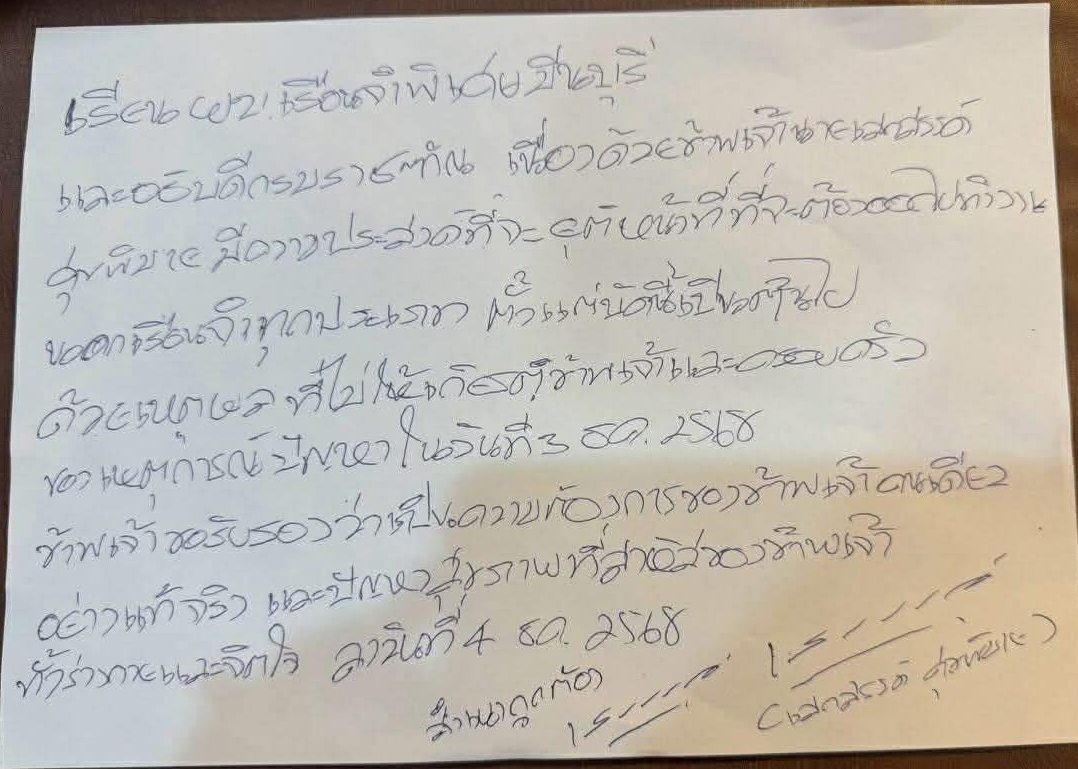 เรียน ผบ. เรือนจำพิเศษมีนบุรี
และอธิบดีกรมราชทัณฑ์ เนื่องด้วยข้าพเจ้านายเสกสรรค์
ศุขพิมาย มีความประสงค์ที่จะยุติหน้าที่ที่จะต้องออกไปทำงาน
นอกเรือนจำทุกประเภท ตั้งแต่บัดนี้เป็นต้นไป
ด้วยเหตุผล ที่ไม่ให้เกิด ข้าพเจ้าและครอบครัว
ของเหตุการณ์ปัญหา ในวันที่ 3 ธค. 2568
ข้าพเจ้าขอรับรองว่าเป็นความต้องการของข้าพเจ้าคนเดียว
อย่างแท้จริง และปัญหาสุขภาพที่สาหัสของข้าพเจ้า
ทั้งร่างกายและจิตใจ ลาวันที่ 4 ธค. 2568
สำเนาถูกต้อง
(เสกสรรค์ ศุขพิมาย)